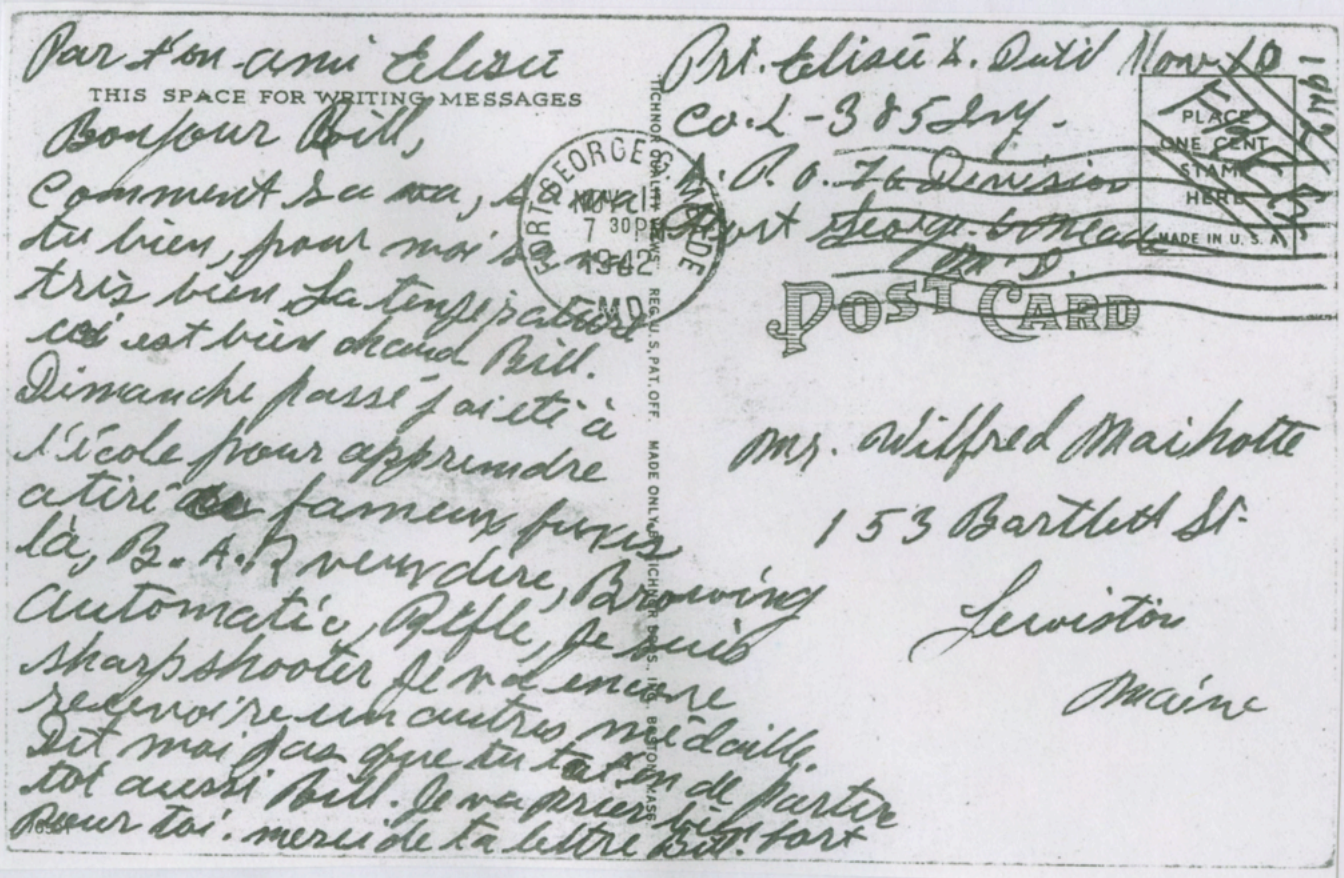 Par ton ami Elisée
THIS SPACE FOR WRITING MESSAGES
Bonjour Bill,
Comment sa va, sa va
tu bien, pour moi sa va
très bien La température
ici est bien chaud Bill.
Dimanche passé j'ai été à
l'école pour apprendre
a tiré fameux fuxis
là, B. A. R veux dire, Browing
Automatic, Rifle, Je suis
sharpshooter Je va encore
recevoire un autres médaille,
Dit moi pas que tu t'atten de partir
toi aussi Bill. Je va prier bien fort
Pour toi. merci de ta lettre Bill.
TICHNOR QUALITY VIEWS REG. U. S. PAT. OFF. MADE ONLY BY TICHNOR BROS., INC. BOSTON, MASS.
Pvt. Elisée L. Dutil Nov. 10 1942
Co. L - 385 Inf.
A. P. O. 76 Division
Fort George G. Mead
M. D.
FORT GEORGE G. MEADE
NOV 11
7 30 PM
1942
MD.
FREE
PLACE
ONE CENT
STAMP
HERE
MADE IN U. S. A.
POST CARD
Mr. Wilfred Mailhotte
153 Bartlett St.
Lewiston
Maine